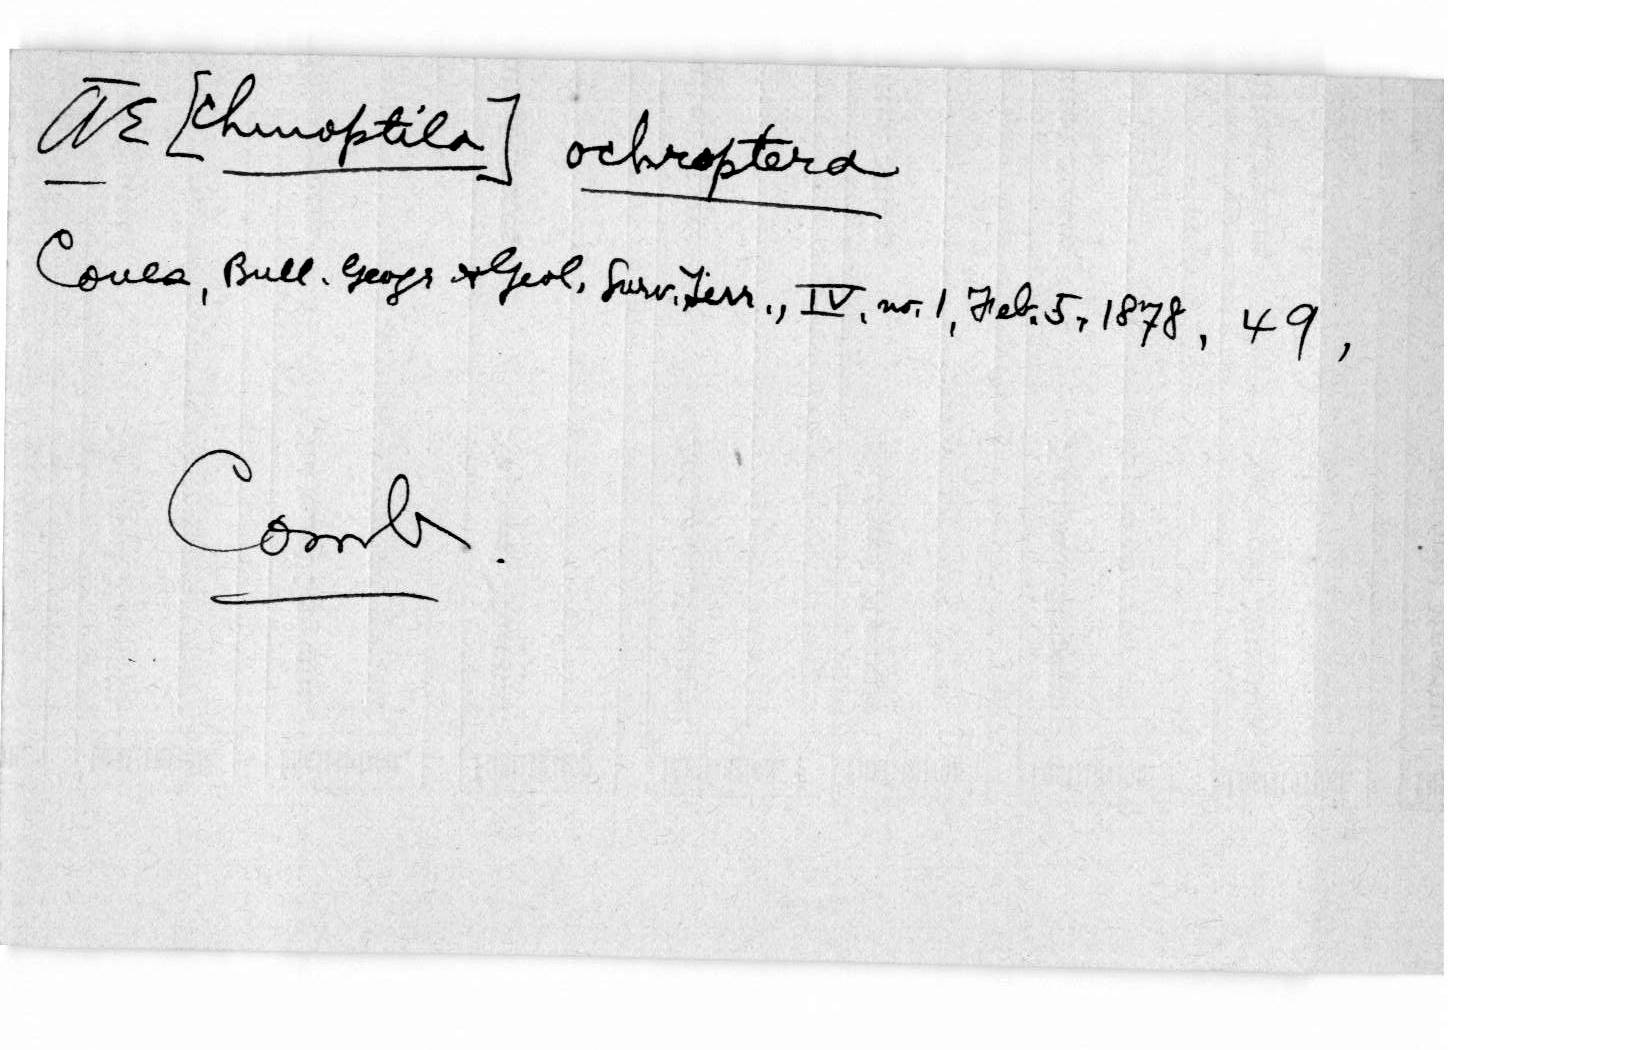 Æ [chmoptila] ochroptera
Coues, Bull. Geogr & Geol. Surv. Terr., IV, no. 1, Feb. 5, 1878, 49,
Comb.